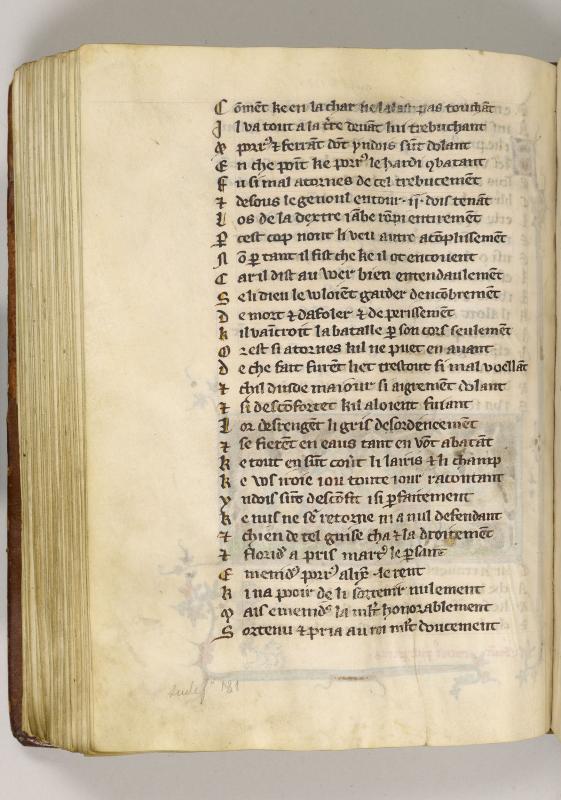 C õmẽt ke en la char ne lalast pas touchãt
I l va tout a la t̃re deuãt lui trebuchant
M porrꝰ ⁊ ferrãt dõt yndois sũt dolant
E n che point ke porrꝰ le hardi ꝯbatant
F u si mal atornes de cel trebucement
⁊ desous le genoul entour .ij. dois tenãt
L os de la dextre iãbe rõpi entiremẽt
P cest cop nont li veu autre acõplissemẽt
N õ ꝑ tant il fist che ke il ot en couuent
C ar il dist au wer bien entendaulemẽt
S e li dieu le woloiẽt garder dencõbremẽt
D e mort ⁊ dafoler ⁊ de perissemẽt
K il vaĩcroit la bataille ꝑ son cors seulemẽt
O r est si atornes kil ne puet en auant
D e che fait furẽt liet trestout si mal voellãt
⁊ chil dinde maiour si aigremẽt dolant
⁊ si descõfortet kil aloient fuiant
L or desrengẽt li gris desordeneemẽt
⁊ se fierẽt en eaus tant en võt abatãt
K e tout en sũt cou̾t li lairis ⁊ li champ
K e vos iroie iou toute iour racontant
Y ndois sũt descõfit isi ꝑfaitement
K e nus ne se retorne ni a nul defendant
⁊ chi en de tel guise cha ⁊ la droitemẽt
⁊ floridꝰ a pris marcꝰ le ꝑsant
E menidꝰ porrꝰ alix̃ le rent
K i na pooir de li sortenir nulement
M ais emenidꝰ la ml̃t honorablement
S ortenu ⁊ pria au roi ml̃t doucement
181